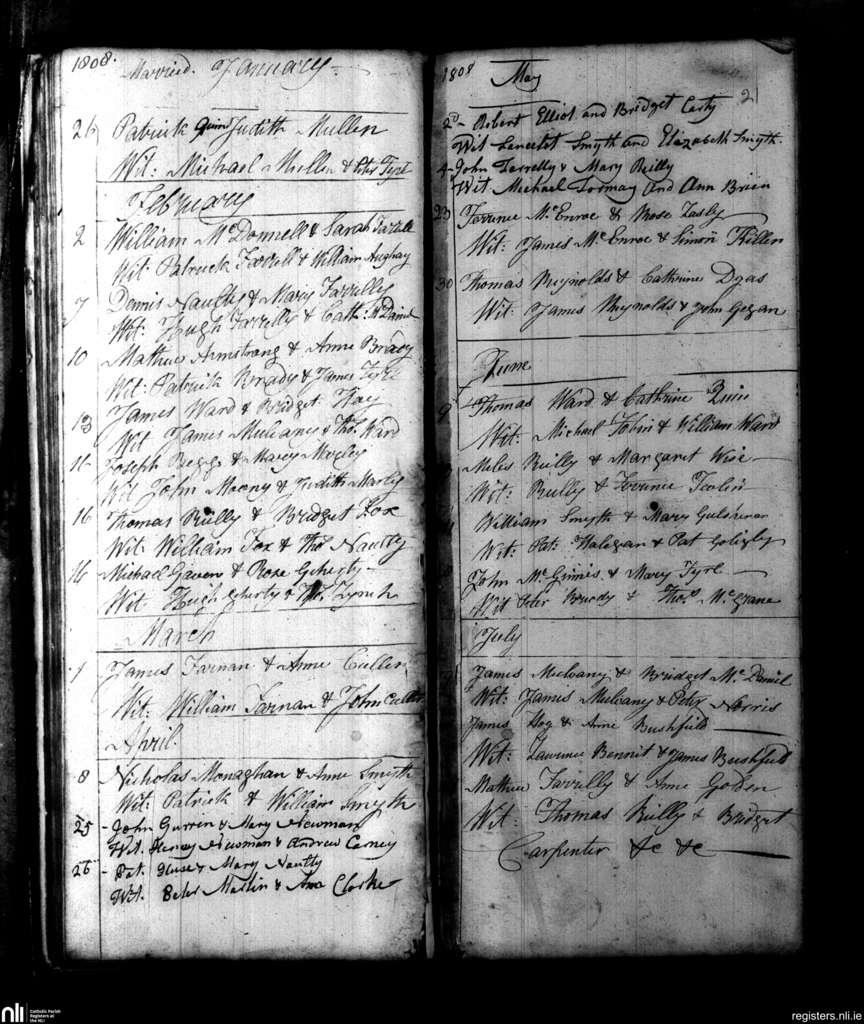 1808.
Married. January
26 Patrick Quin Judith Mullen
Wit: Michael Mullen & Peter Tyre
February
2 William McDonnell & Sarah Farrell
Wit: Patrick Farrell & William Aughay
7 Dennis Naulty & Mary Farrelly
Wit: Hugh Farrelly & Cath: McDaniel
10 Mathew Armstrong & Anne Brady
Wit: Patrick Brady & James Tyre
13 James Ward & Bridget Hay
Wit James Mulvany & Thos Ward
11 Joseph Beggs & Marcy
Wit John Moony & Judith Marly
16 Thomas Rielly & Bridget Fox
Wit. William Fox & Thos Naulty
16 Michael & Rose Geherty
Wit Hugh Geherty & Thos. Lynch
March
1 James Farnan & Anne Cullen
Wit: William Farnan & John Cullen
April.
8 Nicholas Monaghan & Anne Smyth
Wit: Patrick & William Smyth
25 - John Gurrin & Mary Newman
Wit. Henry Newman & Andrew Carney
26 - Pat. & Mary Naulty
Wit. Peter Martin & Ann Clarke
1808 May
21
2d - Robert Elliot and Bridget Carty
Wit Lancelot Smyth and Elizabeth Smyth.
4 - John Farrelly & Mary Reilly
Wit Michael Gormay and Ann Brien
23 Terrence McEnroe & Rose
Wit: James McEnroe & Simon Killen
30 Thomas Reynolds & Cathrine Dyas
Wit: James Reynolds & John Gegan
June
9 Thomas Ward & Cathrine Quin
Wit: Michael Tobin & William Ward
Miles Rielly & Margaret Wise
Wit: Rielly & Terrence Toolin
William Smyth & Mary
Wit: Pat: Halegan & Pat
John McGinnis & Mary Tyre
Wit Peter Brady & Thos. McGrane
July
James Mulvany & Bridget McDaniel
Wit: James Mulvany & Peter Norris
James Hog & Anne Bushfield
Wit: Lawrence Bennit & James Bushfield
Mathew Farrelly & Anne Golden
Wit: Thomas Rielly & Bridget
Carpenter &c &c
nli
Catholic Parish
Registers at
the NLI
registers.nli.ie